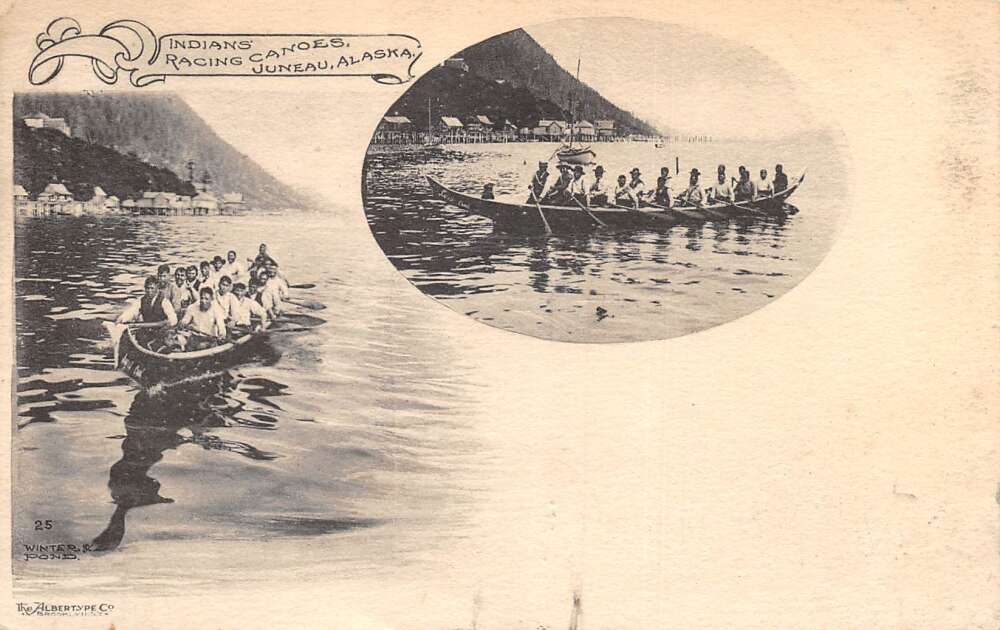 INDIANS'
RACING CANOES,
JUNEAU, ALASKA.
25
WINTER &
POND.
The ALBERTYPE CO
BROOKLYN, N.Y.